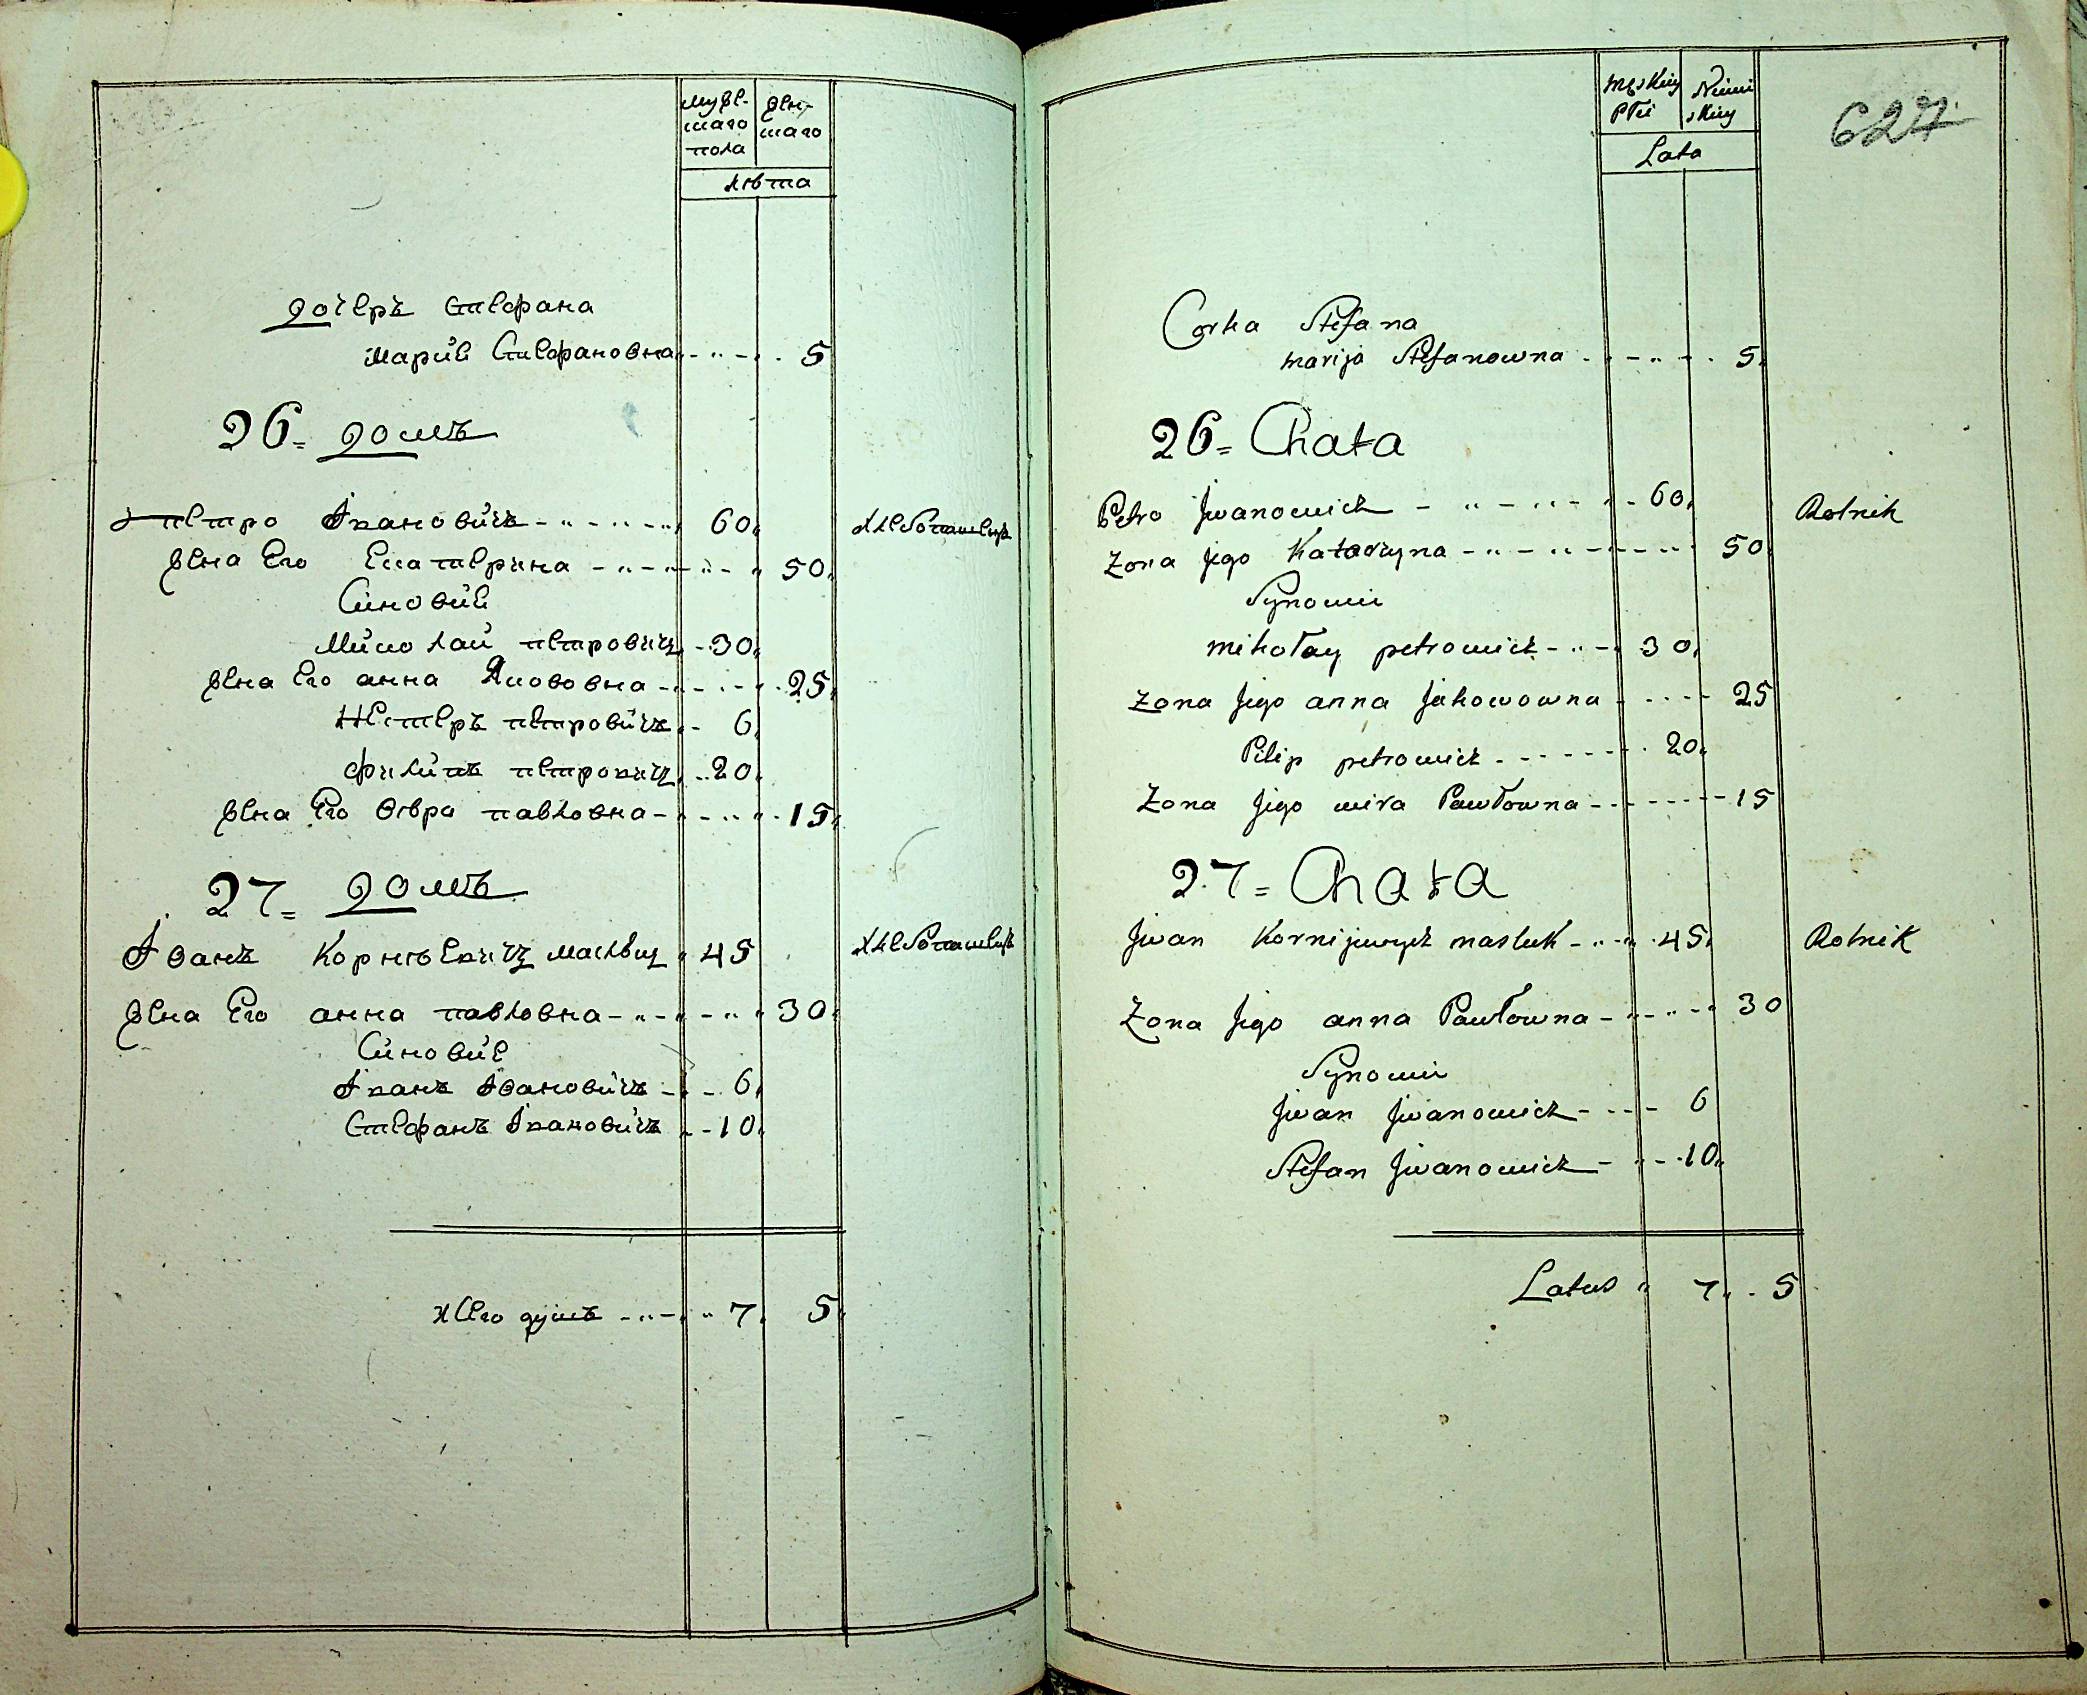 мужеского пола
женскаго
лѣта
дочеръ Стефана
Марiй Стефановна 5
26= домъ
Петро Ивановичъ 60
Жена Его Екатерина 50
Синовiй
Миколай Петровичъ 30
Жена Его анна Якововна 25
Нестеръ Петровичъ 6
Филипъ Петровичъ 20
Жена Его Вѣра Павловна 15
27= домъ
Иванъ Корнѣевичъ
45
Жена Его анна Павловна 30
Синовiе
Иванъ Ивановичъ 6
Стефанъ Ивановичъ 10
всего душъ 7 5
627
Lata
Corka Stefana
marija Stefanowna 5
26= Chata
Petro Jwanowicz 60 Rolnik
Zona Jego Katarzyna 50
Synowii
mikołay petrowicz 30
Zona Jego anna Jakowowna 25
Pilip petrowicz 20
Zona Jego wira Pawłowna 15
27= Chata
Jwan Kornijewycz masluk 45 Rolnik
Zona Jego anna Pawłowna 30
Synowii
Jwan Jwanowicz 6
Stefan Jwanowicz 10
Latus 7 5